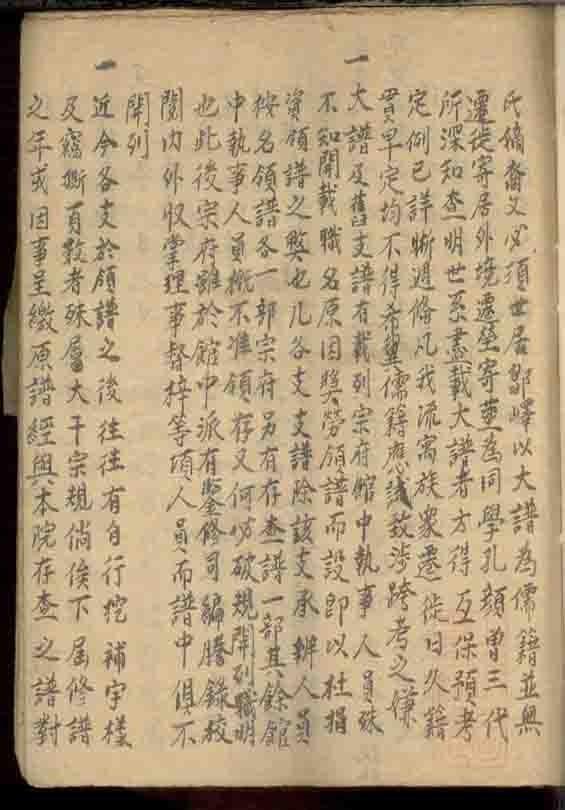 氏嫡裔又必須世居鄒嶧以大譜為儒籍並無
遷徙寄居外境遷塋寄塟為同學孔顏曾三代
所深知查明世系盡載大譜者方得互保預考
定例已詳晰週條凡我流寓族衆遷徙日久籍
貫早定均不得希冀儒籍應試致涉跨考之嫌
一大譜及舊支譜有載列宗府館中執事人員殊
不知開載職名原因獎勞領譜而設即以杜捐
資領譜之弊也凡各支支譜除該支承辦人員
按名領譜各一部宗府另有存查譜一部其餘館
中執事人員概不准領存又何必破規開列職明
也此後宗府雖於館中派有鑒修司編謄錄校
閱內外收掌理事督梓等項人員而譜中俱不
開列
一近今各支於領譜之後往往有自行挖補字樣
及竊撕頁數者殊屬大干宗規倘俟下屆修譜
之年或因事呈繳原譜經與本院存查之譜對